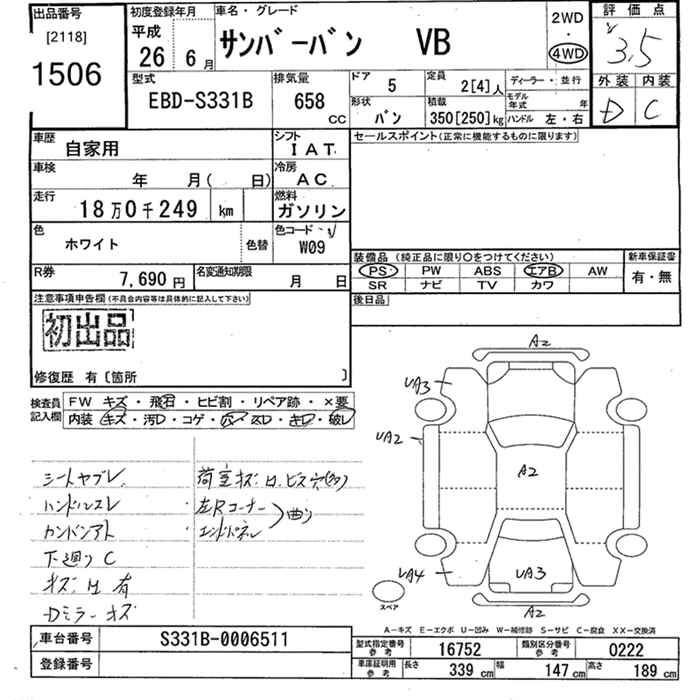 出品番号
[2118]
1506
初度登録年月
平成
26 6月
車名・グレード
サンバーバン VB
2WD
・
4WD
評価点
3.5
型式
EBD-S331B
排気量
658
cc
ドア
5
定員
2[4]人
ディーラー・並行
形状
バン
積載
350[250]kg
モデル年式 年
ハンドル 左・右
外装 内装
D C
車歴
自家用
シフト
IAT
セールスポイント(正常に機能するものに限ります)
車検
年 月( 日)
冷房
AC
走行
18万0千249 km
燃料
ガソリン
色
ホワイト
色替
色コード
W09
装備品(純正品に限り○をつけてください)
新車保証書
PS PW ABS エアB AW
有・無
SR ナビ TV カワ
R券
7,690円
名変通知期限
月 日
後日品
注意事項申告欄(不具合内容等は具体的に記入して下さい)
初出品
修復歴 有〔箇所 〕
検査員
記入欄
FW キズ・飛石・ヒビ割・リペア跡・×要
内装・キズ・汚レ・コゲ・穴・スレ・キレ・破レ
シートヤブレ
ハンドルスレ
下廻り C
キズ・凹 有
ミラーキズ
荷室キズ・凹、ビス穴(多)
左Rコーナー
エンドパネル
曲り
A2
UA3
UA2
A2
UA4
UA3
A2
スペア
A-キズ E-エクボ U-凹み W-補修跡 S-サビ C-腐食 XX-交換済
車台番号
S331B-0006511
登録番号
型式指定番号
参考
16752
類別区分番号
参考
0222
車庫証明用
参考
長さ
339 cm
幅
147 cm
高さ
189 cm